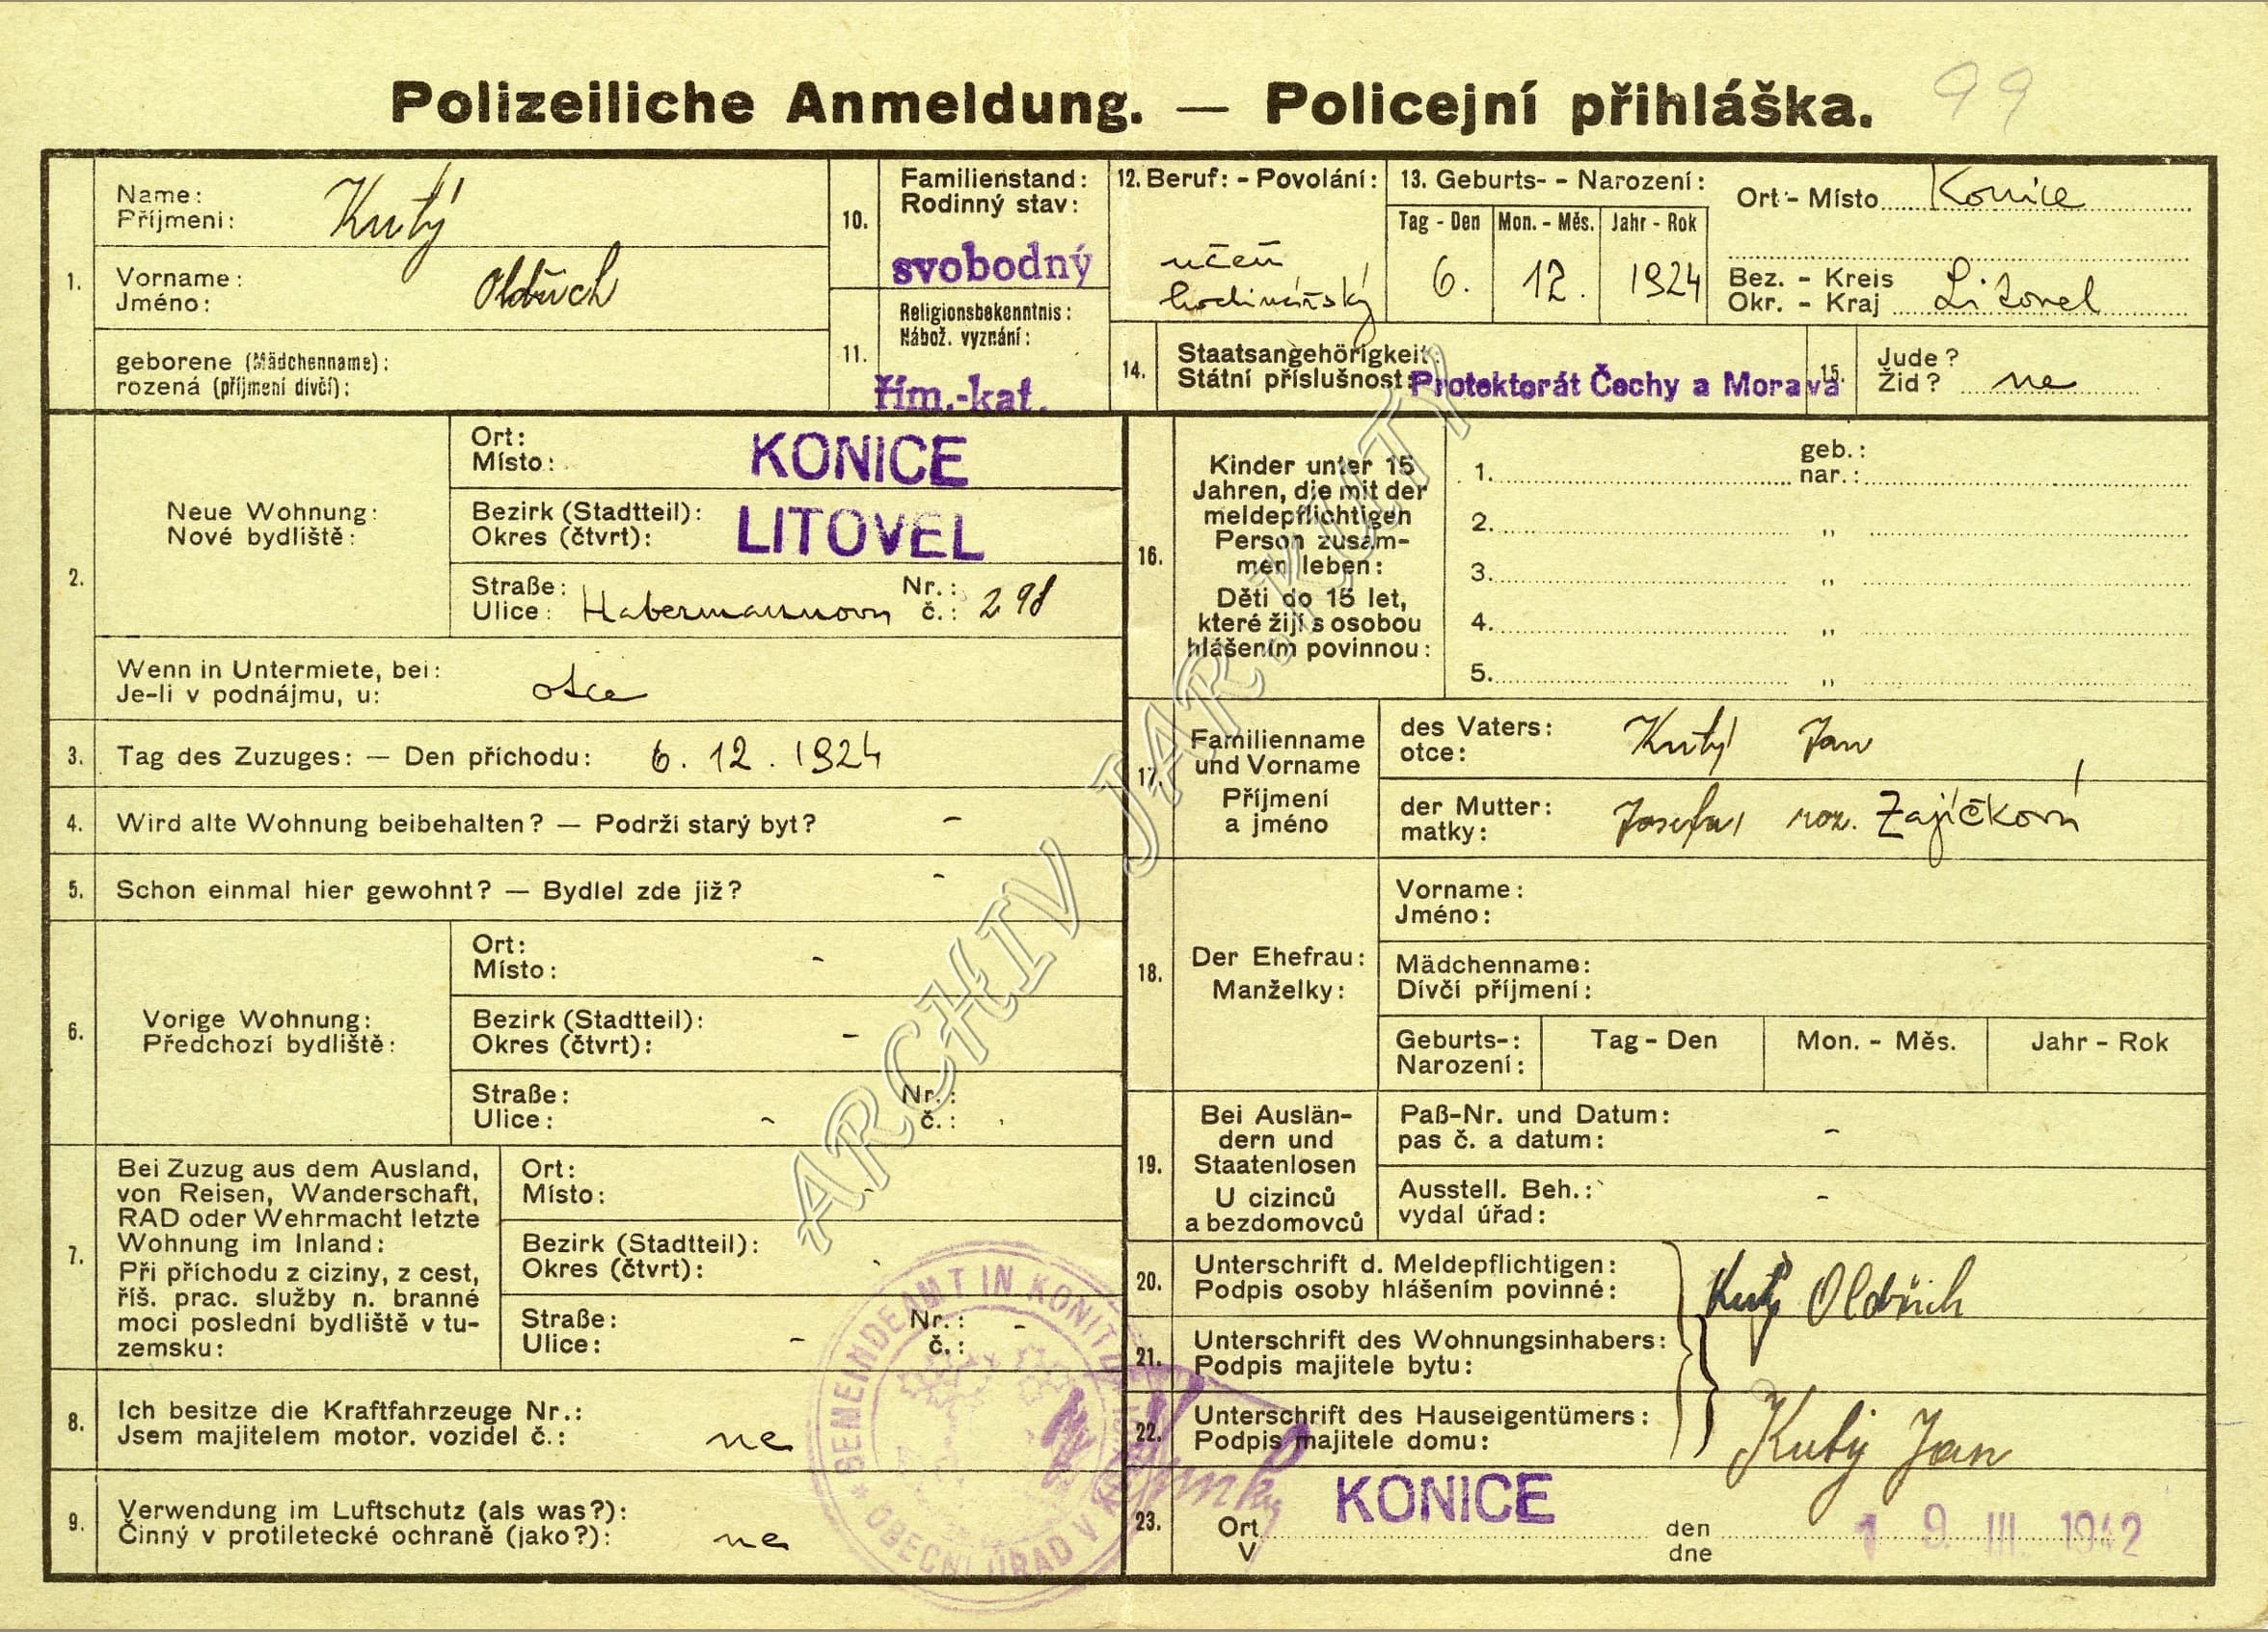 Polizeiliche Anmeldung. — Policejní přihláška.
99
1.
Name:
Příjmení:
Kutý
Vorname:
Jméno:
Oldřich
geborene (Mädchenname):
rozená (příjmení dívčí):
10.
Familienstand:
Rodinný stav:
svobodný
11.
Religionsbekenntnis:
Nábož. vyznání:
řím.-kat.
12. Beruf: - Povolání:
učeň
hodinářský
13. Geburts- - Narození:
Tag - Den Mon. - Měs. Jahr - Rok
6. 12. 1924
Ort - Místo Konice
Bez. - Kreis
Okr. - Kraj Litovel
14.
Staatsangehörigkeit:
Státní příslušnost: Protektorát Čechy a Morava
15.
Jude?
Žid? ne
2.
Neue Wohnung:
Nové bydliště:
Ort:
Místo: KONICE
Bezirk (Stadtteil):
Okres (čtvrt): LITOVEL
Straße: Nr.:
Ulice: Habermannova č.: 298
Wenn in Untermiete, bei:
Je-li v podnájmu, u: otce
3. Tag des Zuzuges: — Den příchodu: 6. 12. 1924
4. Wird alte Wohnung beibehalten? — Podrží starý byt? -
5. Schon einmal hier gewohnt? — Bydlel zde již? -
6.
Vorige Wohnung:
Předchozí bydliště:
Ort:
Místo: -
Bezirk (Stadtteil):
Okres (čtvrt): -
Straße: Nr.:
Ulice: - č.:
7.
Bei Zuzug aus dem Ausland,
von Reisen, Wanderschaft,
RAD oder Wehrmacht letzte
Wohnung im Inland:
Při příchodu z ciziny, z cest,
říš. prac. služby n. branné
moci poslední bydliště v tu-
zemsku:
Ort:
Místo: -
Bezirk (Stadtteil):
Okres (čtvrt): -
Straße: Nr.: -
Ulice: - č.:
8.
Ich besitze die Kraftfahrzeuge Nr.:
Jsem majitelem motor. vozidel č.: ne
9.
Verwendung im Luftschutz (als was?):
Činný v protiletecké ochraně (jako?): ne
GEMEINDEAMT IN KONITZ
OBECNÍ ÚŘAD V
16.
Kinder unter 15
Jahren, die mit der
meldepflichtigen
Person zusam-
men leben:
Děti do 15 let,
které žijí s osobou
hlášením povinnou:
geb.:
1. nar.:
2. „
3. „
4. „
5. „
17.
Familienname
und Vorname
Příjmení
a jméno
des Vaters:
otce: Kutý Jan
der Mutter:
matky: Josefa, roz. Zajíčková
18.
Der Ehefrau:
Manželky:
Vorname:
Jméno:
Mädchenname:
Dívčí příjmení:
Geburts-:
Narození:
Tag - Den Mon. - Měs. Jahr - Rok
19.
Bei Auslän-
dern und
Staatenlosen
U cizinců
a bezdomovců
Paß-Nr. und Datum:
pas č. a datum: -
Ausstell. Beh.:
vydal úřad: -
20.
Unterschrift d. Meldepflichtigen:
Podpis osoby hlášením povinné:
Kutý Oldřich
21.
Unterschrift des Wohnungsinhabers:
Podpis majitele bytu:
22.
Unterschrift des Hauseigentümers:
Podpis majitele domu:
Kutý Jan
23.
Ort
V
KONICE
den
dne
19. III. 1942
ARCHIV JAR. KUTÝ